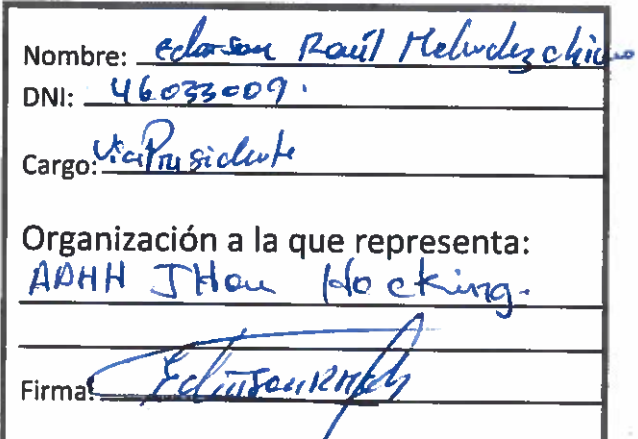 Nombre: Raúl
DNI: 46033009.
Cargo: VicePresidente
Organización a la que representa:
AAHH JHon Hocking.
Firma: